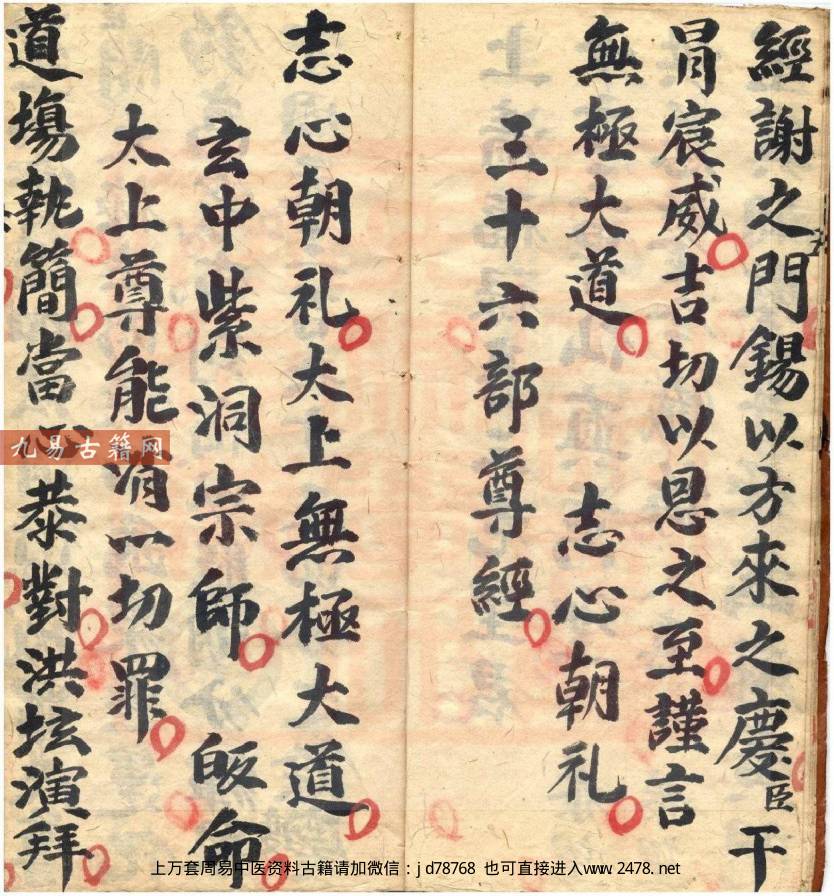 經謝之門錫以方來之慶臣干
冐宸威吉切以恩之至謹言
無極大道 志心朝礼
三十六部尊經
志心朝礼太上無極大道
玄中紫洞宗師 皈命
太上尊能消一切罪
道塲執簡當心恭對洪坛演拜
九易古籍网
上万套周易中医资料古籍请加微信：jd78768 也可直接进入www.2478.net